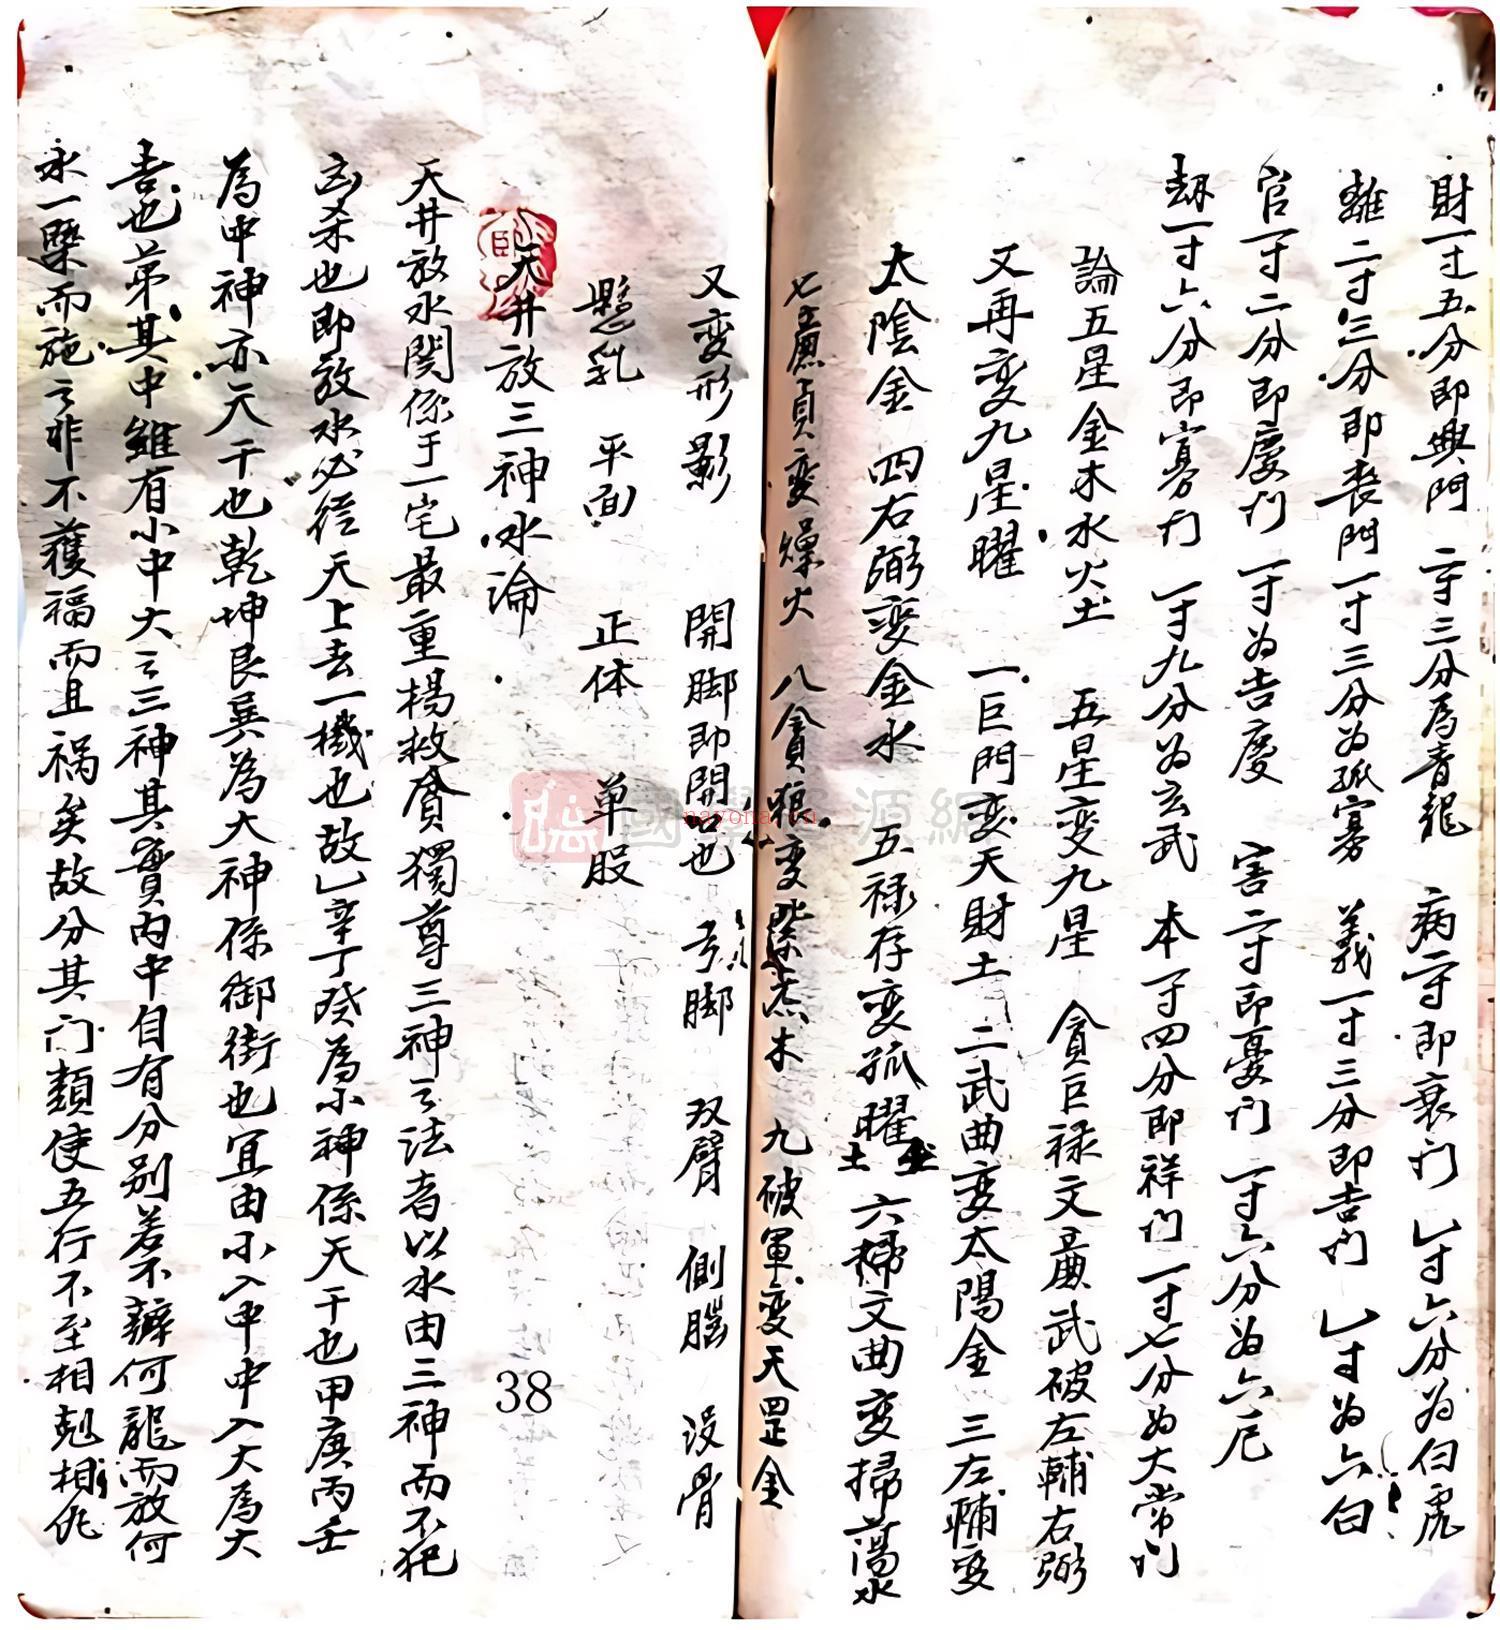 財一寸五分即興門 二寸三分為青龍 病二寸即衰門 七寸六分为白虎
離二寸三分即喪門 一寸三分为孤寡 義一寸三分即吉门 七寸为六白
官一寸二分即慶门 一寸为吉慶 害二寸即憂门 一寸六分为六厄
劫一寸六分即寡门 一寸九分为玄武 本一寸四分即祥门 一寸七分为大常门
論五星金木水火土 五星变九星 貪巨禄文廉武破左輔右弼
又再变九星曜 一巨門变天財土 二武曲变太陽金 三左輔变
太陰金 四右弼变金水 五禄存变孤曜土 六文曲变掃蕩水
七廉貞变燥火 八貪狼变紫杰木 九破軍变天罡金
又变形影 開脚即開口也 弓脚 双臂 側腦 没骨
懸乳 平面 正体 单股
天井放三神水論
天井放水関係于一宅最重楊救貧獨尊三神之法者以水由三神而不犯
凶杀也即放水必從天上去一機也故乙辛丁癸為小神係天干也甲庚丙壬
為中神亦天干也乾坤艮巽為大神係御街也宜由小入中中入大為大
吉也苐其中雖有小中大之三神其實内中自有分别若不辨何龍而放何
水一槩而施之非不獲福而且禍矣故分其门類使五行不至相剋相仇
38
國學 源網
nayona.cn